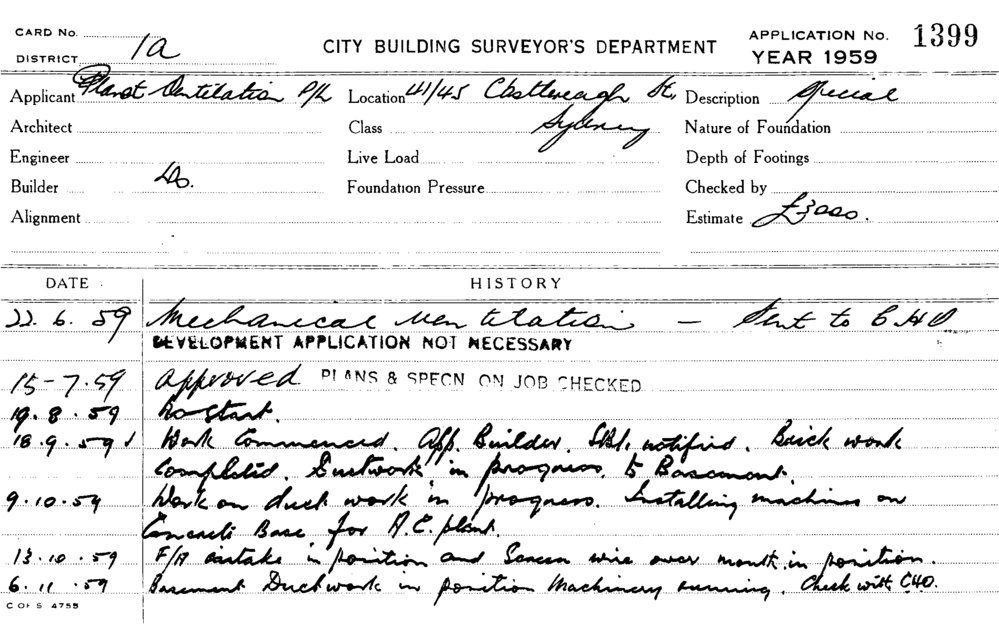 CARD No.
DISTRICT 1a
CITY BUILDING SURVEYOR'S DEPARTMENT
APPLICATION No. 1399
YEAR 1959
Applicant Planet Ventilation P/L Location 41/45 Castlereagh St, Description Special
Architect Class Sydney Nature of Foundation
Engineer Live Load Depth of Footings
Builder Do. Foundation Pressure Checked by
Alignment Estimate £3000.
DATE HISTORY
22. 6. 59 Mechanical Ventilation — Sent to C.H.O
DEVELOPMENT APPLICATION NOT NECESSARY
15-7.59 Approved PLANS & SPECN ON JOB CHECKED
19.8.59 No Start.
18.9.59 Work Commenced. App. Builder. notified. Brick work
Completed. Ductwork in progress to Basement.
9.10.59 Work on duct work in progress. Installing machines on
Concrete Base for A.C. plant.
13.10.59 F/A intake in position and Screen wire over mouth in position.
6.11.59 Basement Ductwork in position Machinery running. Check with C.H.O.
C OF S 4755